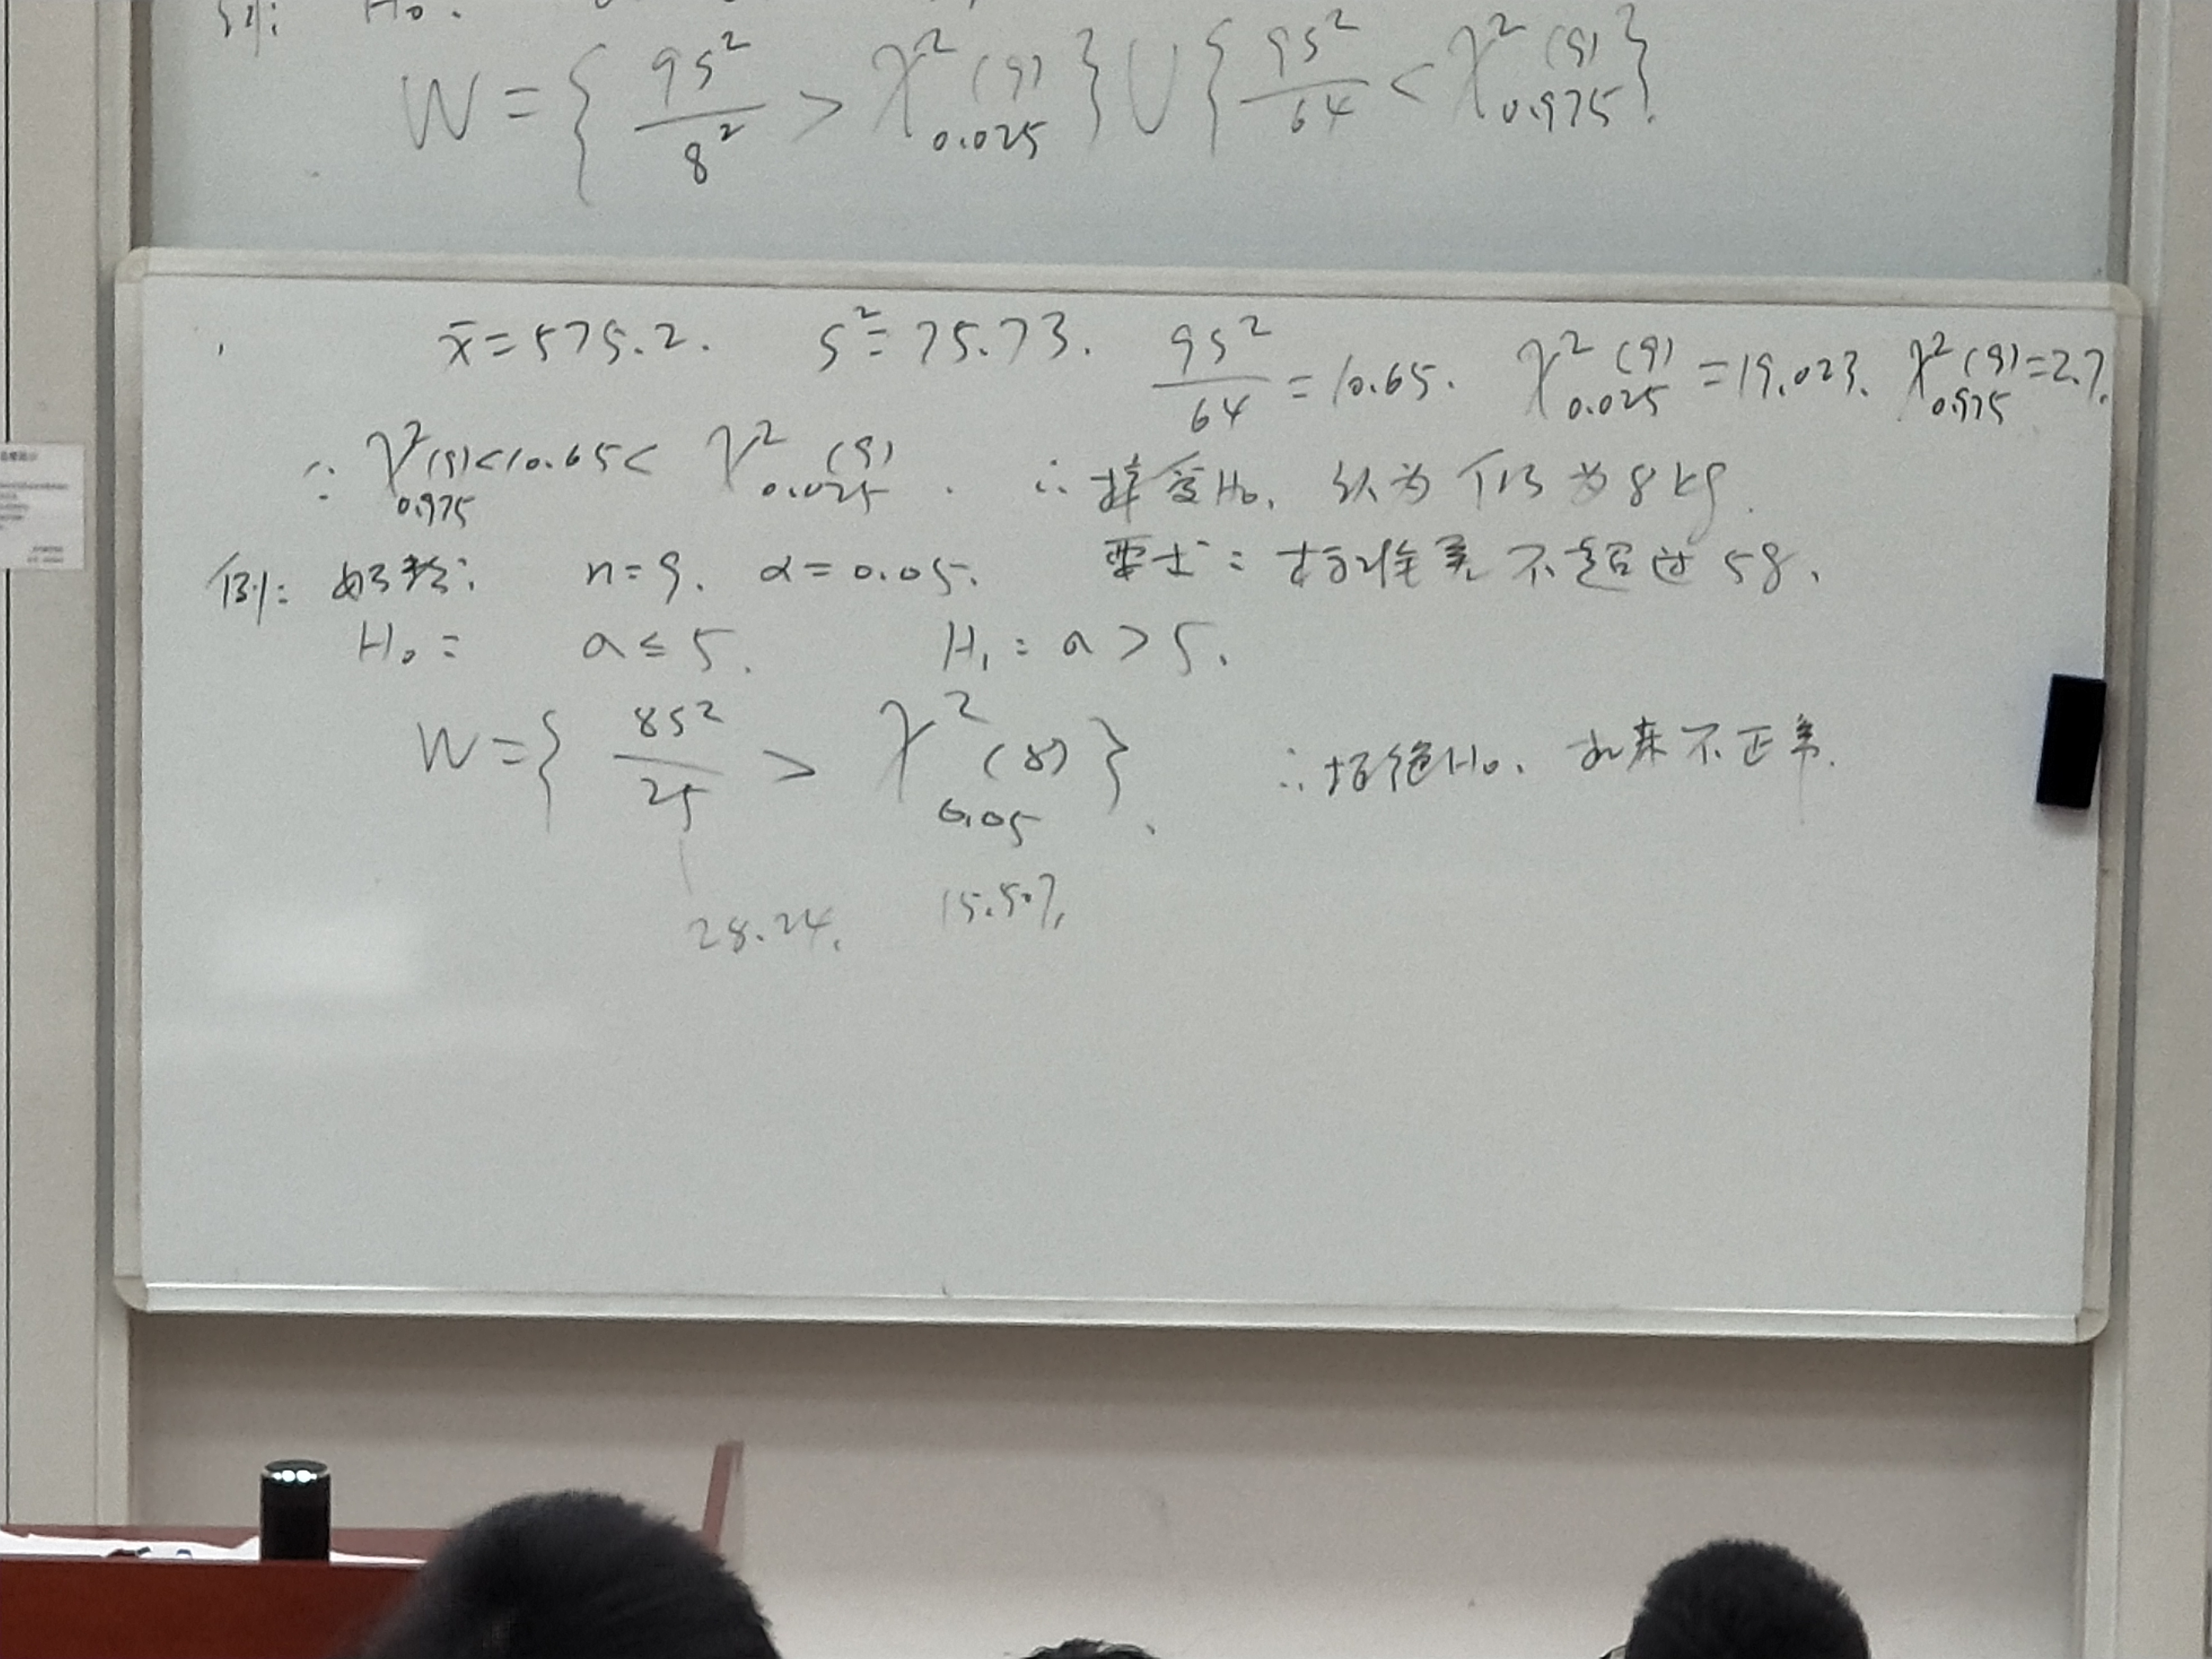 例: H₀:
W = { 9S²/8² > χ²₀.₀₂₅(9) } ∪ { 9S²/64 < χ²₀.₉₇₅(9) }.
x̄ = 575.2. S² = 75.73. 9S²/64 = 10.65. χ²₀.₀₂₅(9) = 19.023. χ²₀.₉₇₅(9) = 2.7.
∵ χ²₀.₉₇₅(9) < 10.65 < χ²₀.₀₂₅(9). ∴ 接受H₀, 认为 仍为8kg.
例: n=9. α=0.05. 要求: 标准差不超过5g.
H₀: σ ≤ 5. H₁: σ > 5.
W = { 8S²/25 > χ²₀.₀₅(8) }. ∴ 拒绝H₀. 不正常.
28.24. 15.507,